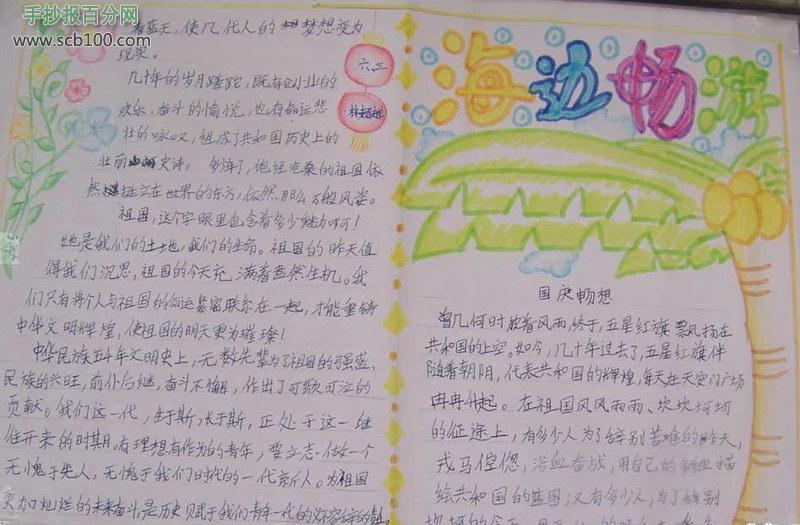 手抄报百分网
www.scb100.com
着蓝天,使几代人的梦想变为
现实。
几十年的岁月蹉跎,既有创业的
欢乐,奋斗的愉悦,也有命运悲
壮的咏叹,组成了共和国历史上的
壮丽史诗。多少年了,饱经沧桑的祖国依
然屹立在世界的东方,依然那么万般风姿。
祖国,这个字眼里包含着多少魅力啊!
她是我们的土地,我们的生命。祖国的昨天值
得我们沉思,祖国的今天充满着盎然生机。我
们只有将个人与祖国的命运紧密联系在一起,才能重铸
中华文明辉煌,使祖国的明天更为璀璨!
中华民族五千年文明史上,无数先辈为了祖国的强盛、
民族的兴旺,前仆后继,奋斗不懈,作出了可歌可泣的
贡献。我们这一代,生于斯,长于斯,正处于这一继
往开来的时期,有理想有作为的青年,要立志做一个
无愧于先人,无愧于我们时代的一代新人。为祖国
更加灿烂的未来奋斗,是历史赋于我们青年一代的
六三
海边畅游
国庆畅想
曾几何时披着风雨,终于,五星红旗飘扬在
共和国的上空。如今,几十年过去了,五星红旗伴
随着朝阴,代表共和国的辉煌,每天在天安门广场
冉冉升起。在祖国风风雨雨、坎坎坷坷
的征途上,有多少人为了辞别苦难的昨天,
戎马倥偬,浴血奋战,用自己的鲜血描
绘共和国的蓝图;又有多少人,为了辞别
坎坷的今天,